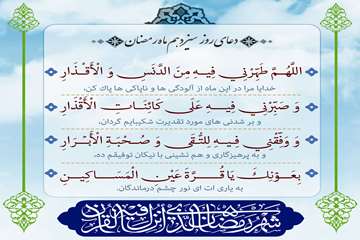 دعای روز سیزدهم ماه رمضان
اللَّهُمَّ طَهِّرْنِي فِيهِ مِنَ الدَّنَسِ وَ الْأَقْذَارِ
خدایا مرا در این ماه از آلودگی ها و ناپاکی ها پاک کن،
وَ صَبِّرْنِي فِيهِ عَلَى كَائِنَاتِ الْأَقْدَارِ
و بر شدنی های مورد تقدیرت شکیبایم گردان،
وَ وَفِّقْنِي فِيهِ لِلتُّقَى وَ صُحْبَةِ الْأَبْرَارِ
و به پرهیزگاری و هم نشینی با نیکان توفیقم ده،
بِعَوْنِكَ يَا قُرَّةَ عَيْنِ الْمَسَاكِينِ
به یاری ات ای نور چشم درماندگان.
شهر رمضان الذی انزل فیه القرآن